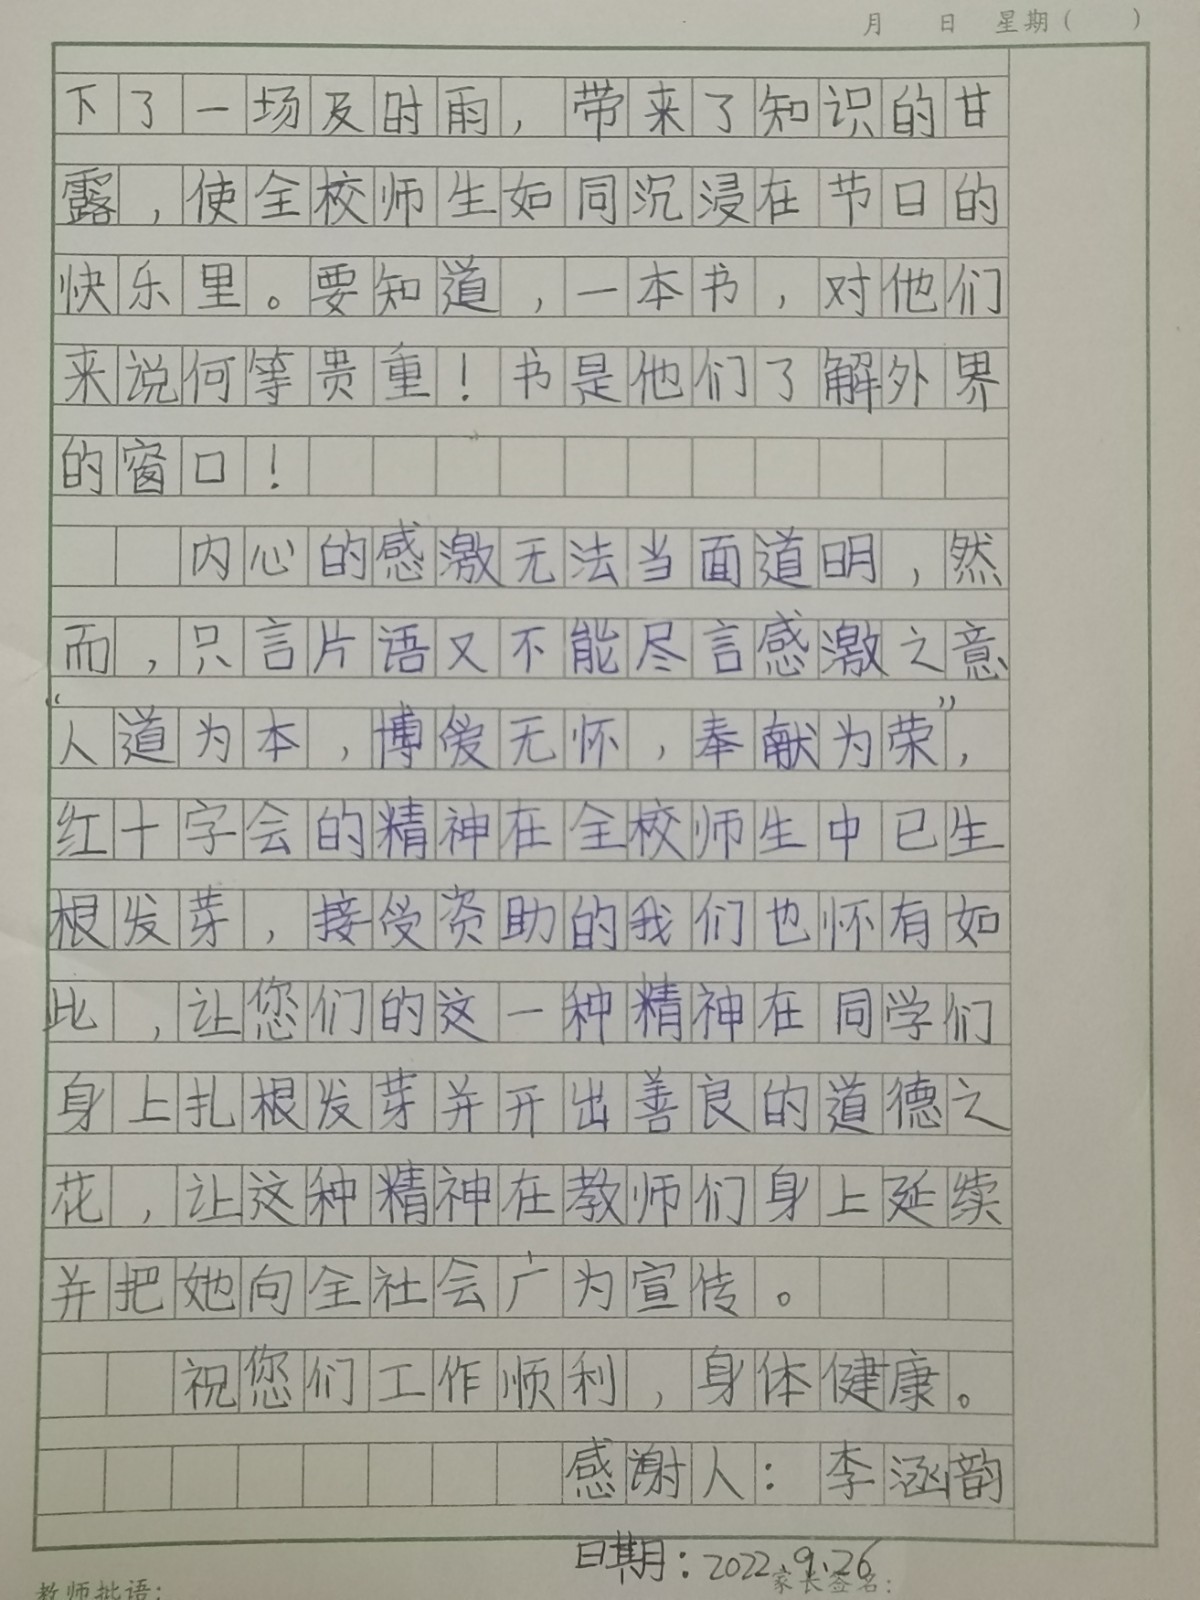 月 日 星期( )
下了一场及时雨，带来了知识的甘
露，使全校师生如同沉浸在节日的
快乐里。要知道，一本书，对他们
来说何等贵重！书是他们了解外界
的窗口！
内心的感激无法当面道明，然
而，只言片语又不能尽言感激之意
“人道为本，博爱无怀，奉献为荣”，
红十字会的精神在全校师生中已生
根发芽，接受资助的我们也怀有如
此，让您们的这一种精神在同学们
身上扎根发芽并开出善良的道德之
花，让这种精神在教师们身上延续
并把她向全社会广为宣传。
祝您们工作顺利，身体健康。
感谢人：李涵韵
日期：2022.9.26
教师批语： 家长签名：